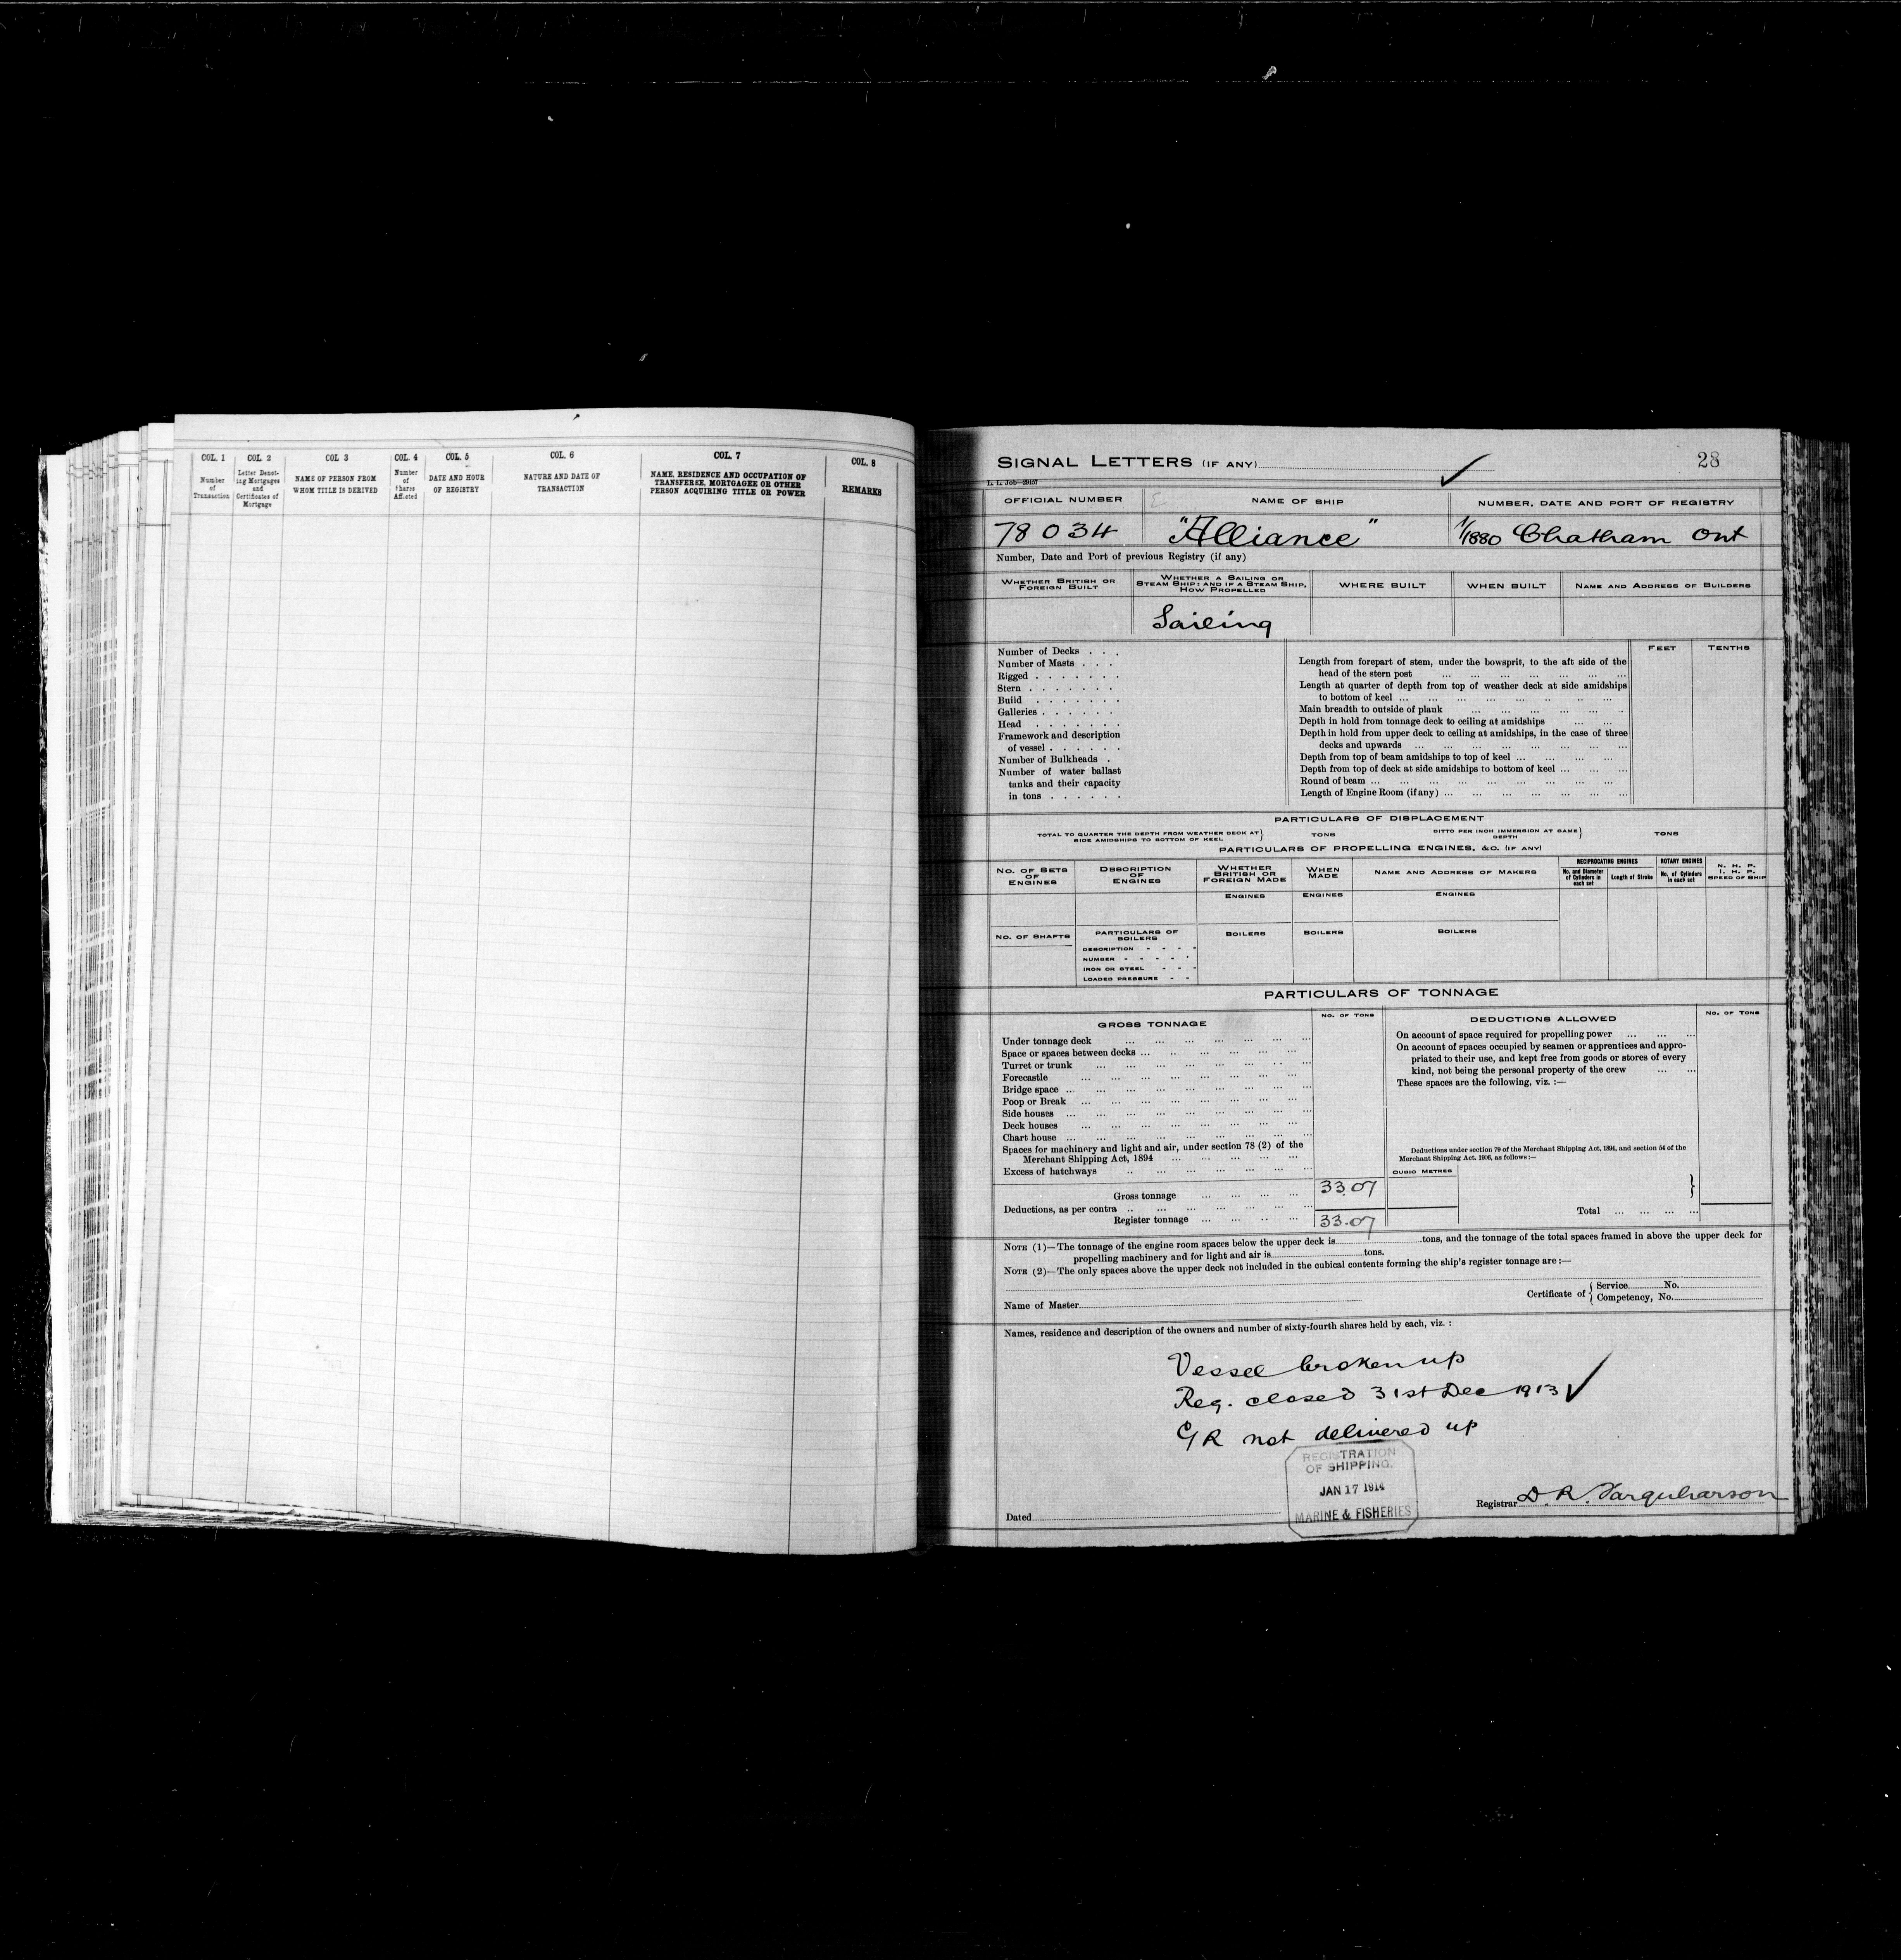 COL. 1
Number
of
Transaction
COL. 2
Letter Denot-
ing Mortgages
and
Certificates of
Mortgage
COL. 3
NAME OF PERSON FROM
WHOM TITLE IS DERIVED
COL. 4
Number
of
Shares
Affected
COL. 5
DATE AND HOUR
OF REGISTRY
COL. 6
NATURE AND DATE OF
TRANSACTION
COL. 7
NAME, RESIDENCE AND OCCUPATION OF
TRANSFEREE, MORTGAGEE OR OTHER
PERSON ACQUIRING TITLE OR POWER
COL. 8
REMARKS
SIGNAL LETTERS (IF ANY)
28
L. L. Job—29457
OFFICIAL NUMBER
NAME OF SHIP
NUMBER, DATE AND PORT OF REGISTRY
78034
"Alliance"
1/1880 Chatham Ont
Number, Date and Port of previous Registry (if any)
WHETHER BRITISH OR
FOREIGN BUILT
WHETHER A SAILING OR
STEAM SHIP: AND IF A STEAM SHIP,
HOW PROPELLED
WHERE BUILT
WHEN BUILT
NAME AND ADDRESS OF BUILDERS
Sailing
Number of Decks
Number of Masts
Rigged
Stern
Build
Galleries
Head
Framework and description
of vessel
Number of Bulkheads
Number of water ballast
tanks and their capacity
in tons
FEET
TENTHS
Length from forepart of stem, under the bowsprit, to the aft side of the
head of the stern post
Length at quarter of depth from top of weather deck at side amidships
to bottom of keel
Main breadth to outside of plank
Depth in hold from tonnage deck to ceiling at amidships
Depth in hold from upper deck to ceiling at amidships, in the case of three
decks and upwards
Depth from top of beam amidships to top of keel
Depth from top of deck at side amidships to bottom of keel
Round of beam
Length of Engine Room (if any)
PARTICULARS OF DISPLACEMENT
TOTAL TO QUARTER THE DEPTH FROM WEATHER DECK AT
SIDE AMIDSHIPS TO BOTTOM OF KEEL
TONS
DITTO PER INCH IMMERSION AT SAME
DEPTH
TONS
PARTICULARS OF PROPELLING ENGINES, &C. (IF ANY)
NO. OF SETS
OF
ENGINES
DESCRIPTION
OF
ENGINES
WHETHER
BRITISH OR
FOREIGN MADE
WHEN
MADE
NAME AND ADDRESS OF MAKERS
RECIPROCATING ENGINES
No. and Diameter
of Cylinders in
each set
Length of Stroke
ROTARY ENGINES
No. of Cylinders
in each set
N. H. P.
I. H. P.
SPEED OF SHIP
ENGINES
ENGINES
ENGINES
NO. OF SHAFTS
PARTICULARS OF
BOILERS
BOILERS
BOILERS
BOILERS
DESCRIPTION
NUMBER
IRON OR STEEL
LOADED PRESSURE
PARTICULARS OF TONNAGE
GROSS TONNAGE
NO. OF TONS
DEDUCTIONS ALLOWED
NO. OF TONS
Under tonnage deck
Space or spaces between decks
Turret or trunk
Forecastle
Bridge space
Poop or Break
Side houses
Deck houses
Chart house
Spaces for machinery and light and air, under section 78 (2) of the
Merchant Shipping Act, 1894
Excess of hatchways
Gross tonnage 33.07
Deductions, as per contra
Register tonnage 33.07
On account of space required for propelling power
On account of spaces occupied by seamen or apprentices and appro-
priated to their use, and kept free from goods or stores of every
kind, not being the personal property of the crew
These spaces are the following, viz. :—
Deductions under section 79 of the Merchant Shipping Act, 1894, and section 54 of the
Merchant Shipping Act, 1906, as follows :—
CUBIC METRES
Total
NOTE (1)—The tonnage of the engine room spaces below the upper deck is tons, and the tonnage of the total spaces framed in above the upper deck for
propelling machinery and for light and air is tons.
NOTE (2)—The only spaces above the upper deck not included in the cubical contents forming the ship's register tonnage are :—
Name of Master
Certificate of { Service No.
Competency, No.
Names, residence and description of the owners and number of sixty-fourth shares held by each, viz. :
Vessel broken up
Reg. closed 31st Dec 1913
CR not delivered up
REGISTRATION
OF SHIPPING.
JAN 17 1914
MARINE & FISHERIES
Dated
Registrar D. R. Farquharson